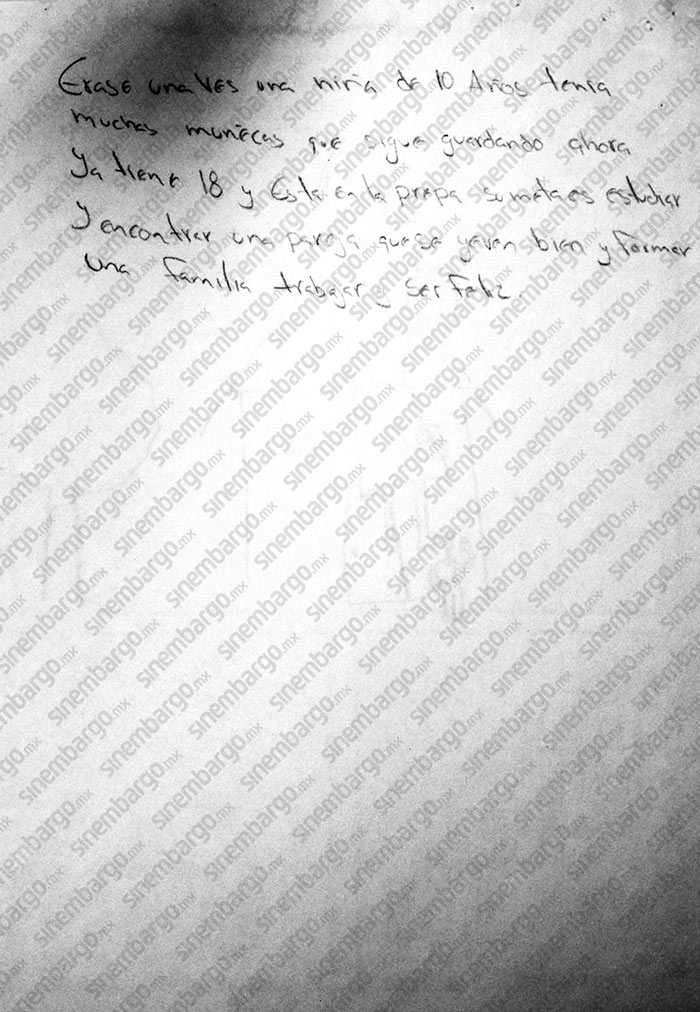 Erase una ves una niña de 10 Años tenia
muchas muñecas que sigue guardando ahora
Ya tiene 18 y Esta en la prepa su meta es estudiar
y encontrar una pareja que se yeven bien y Formar
una Familia trabajar y ser Feliz.
sinembargo.mx